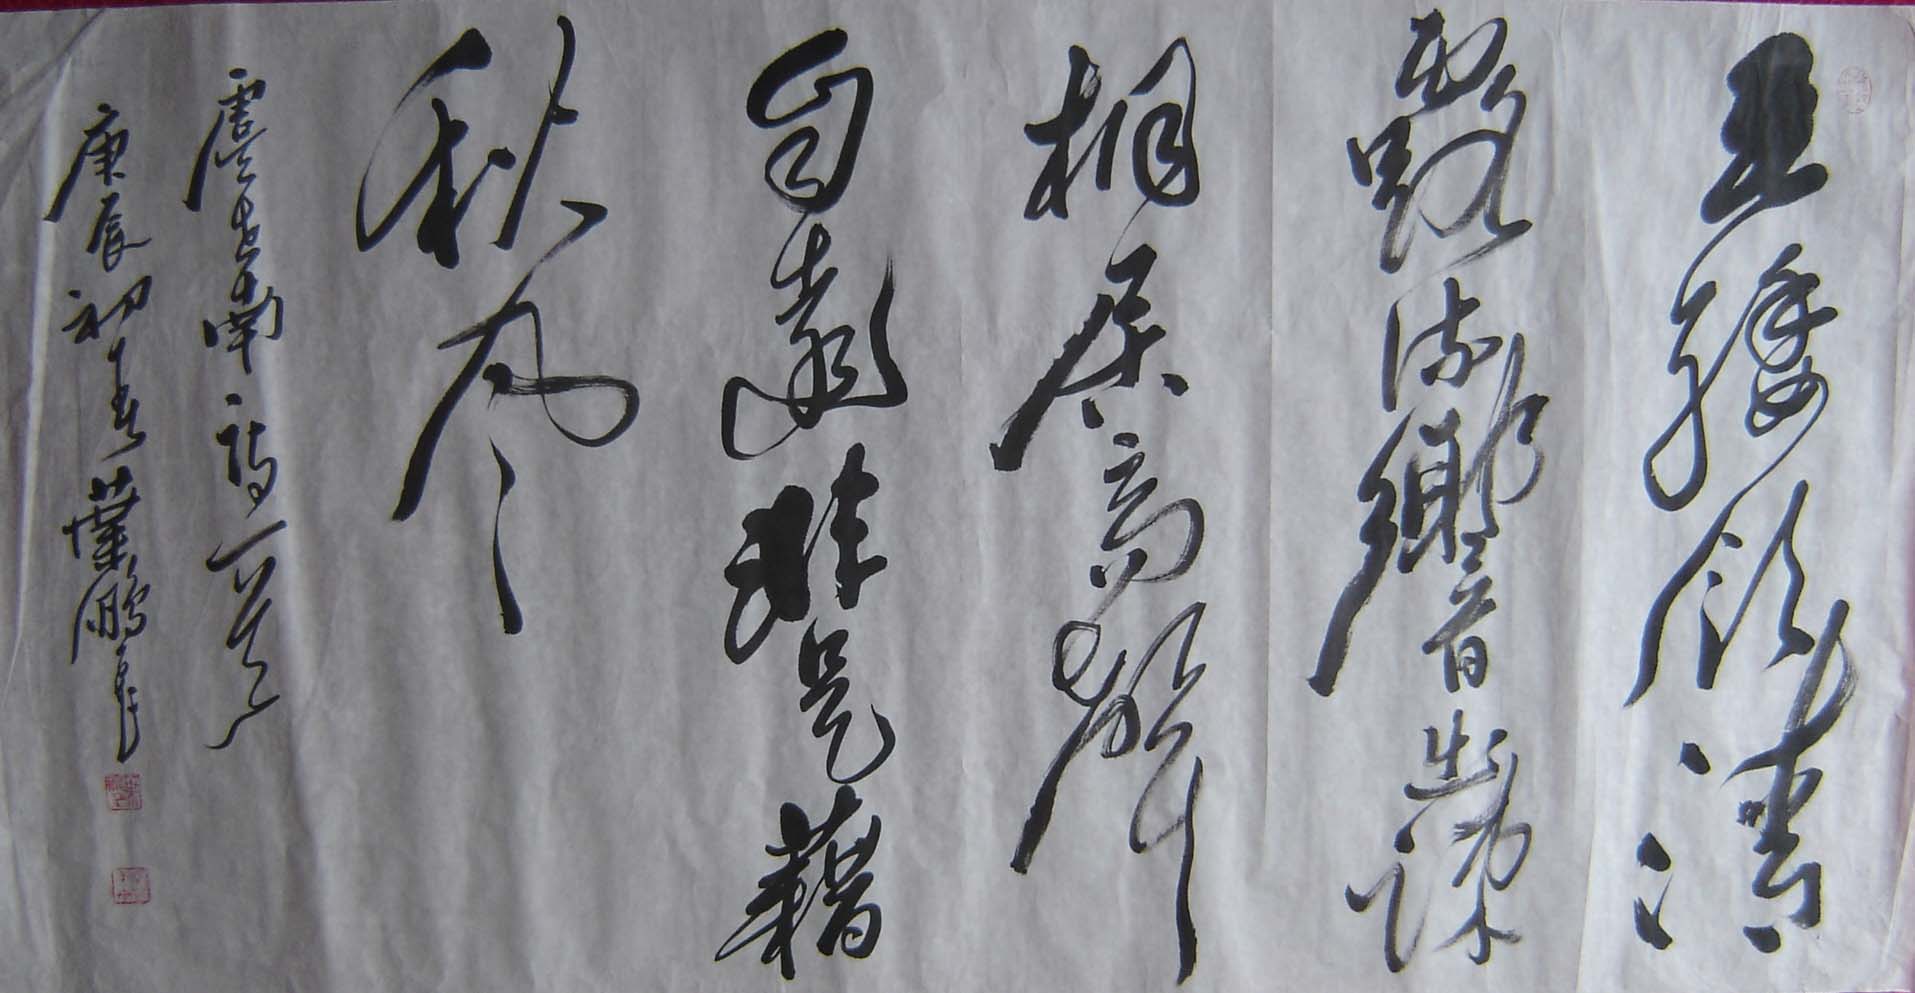 垂緌飲清
露流響出疎
桐居高聲
自遠非是藉
秋風
虞世南詩一首
庚辰初春葉鵬飛